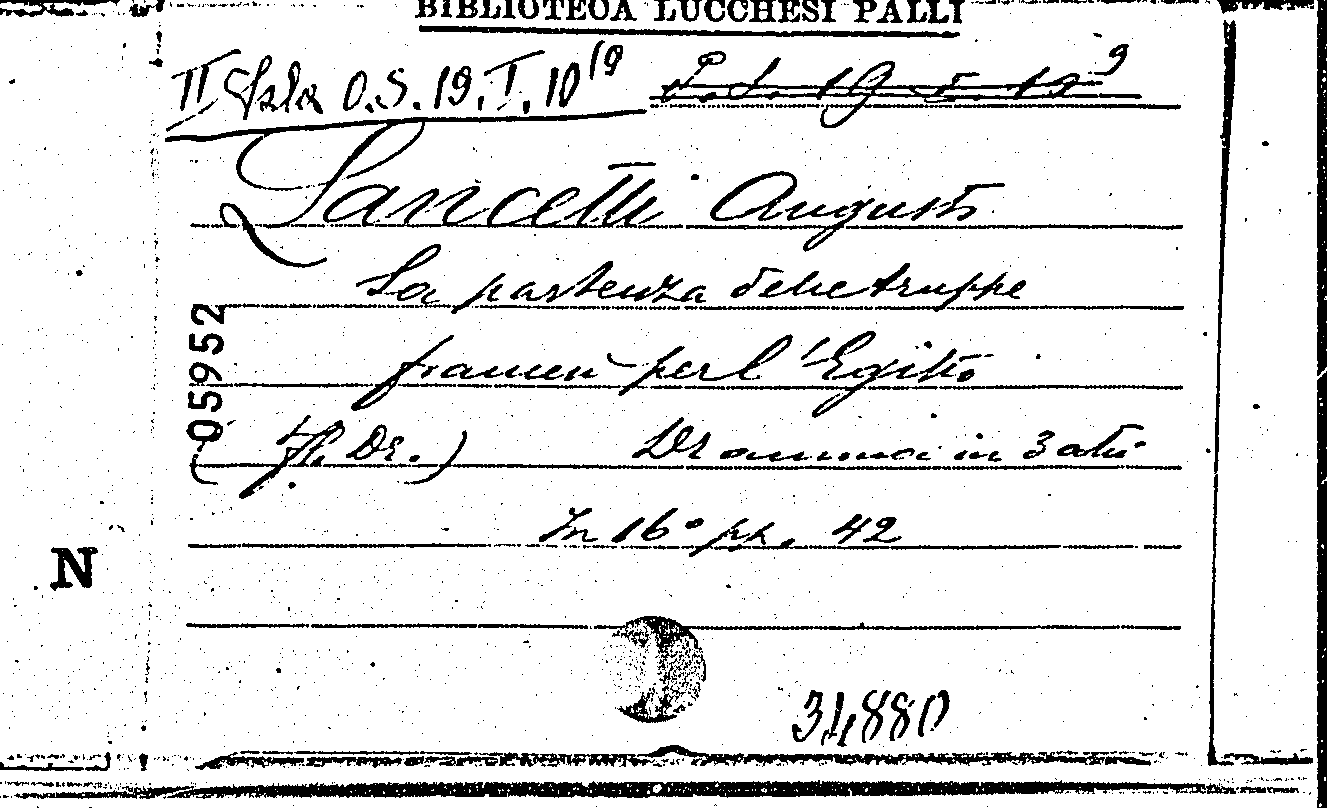 BIBLIOTECA LUCCHESI PALLI
II Sala O.S. 19. I. 10 19
Lancetti Augusto
La partenza delle truppe
francesi per l'Egitto
(Dr.) Dramma in 3 atti
In 16° pp. 42
05952
N
34880